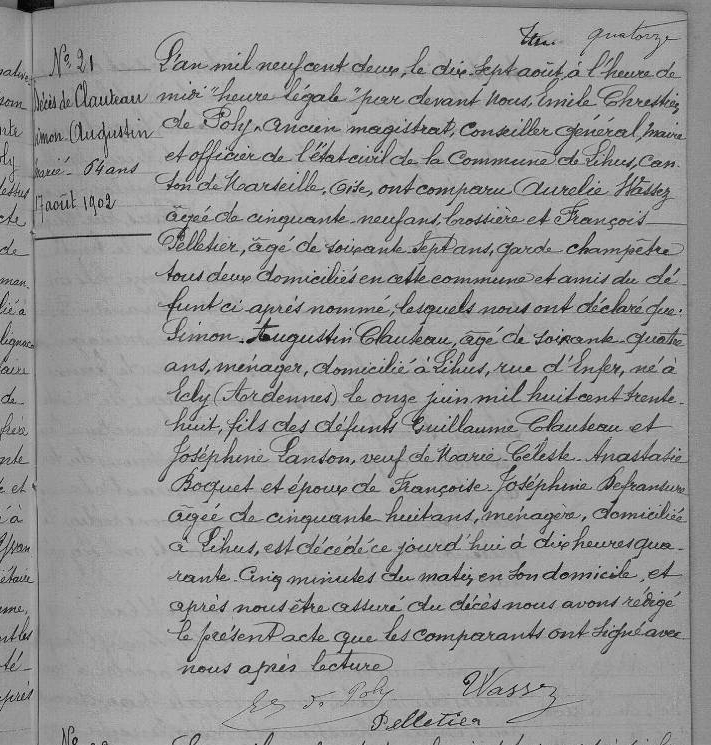 quatorze
N° 21
Décès de Clauteau
Simon Augustin
marié - 64 ans
17 août 1902
L'an mil neuf cent deux, le dix-sept août, à l'heure de
midi "heure légale" par devant Nous, Emile Chrestien
de Poly, ancien magistrat, Conseiller général, maire
et officier de l'état civil de la Commune de Lihus, can-
ton de Marseille, Oise, ont comparu Aurelie Wassez
âgée de cinquante-neuf ans, brossière et François
Pelletier, âgé de soixante-sept ans, garde champêtre
tous deux domiciliés en cette commune et amis du dé-
funt ci après nommé, lesquels nous ont déclaré que
Simon Augustin Clauteau, âgé de soixante-quatre
ans, ménager, domicilié à Lihus, rue d'Enfer, né à
Ecly (Ardennes) le onze juin mil huit cent trente-
huit, fils des défunts Guillaume Clauteau et
Joséphine Lanson, veuf de Marie Céleste Anastasie
Boquet et époux de Françoise Joséphine Defransure
âgée de cinquante huit ans, ménagère, domiciliée
à Lihus, est décédé ce jourd'hui à dix heures qua-
rante-cinq minutes du matin en son domicile, et
après nous être assuré du décès nous avons rédigé
le présent acte que les comparants ont signé avec
nous après lecture
de Poly
Wassez
Pelletier